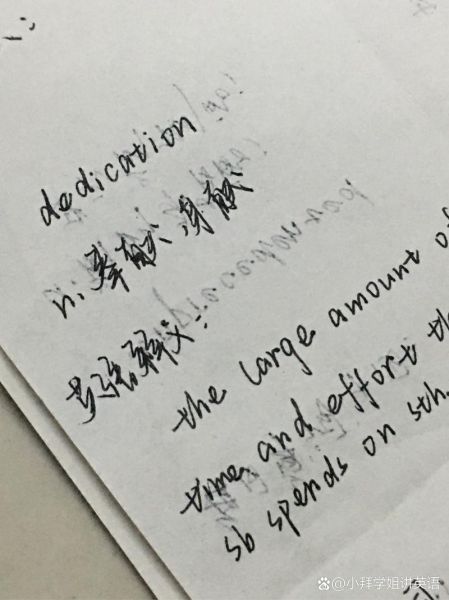 dedication
n: 奉献 身献
英語释义:
the large amount of
time and effort th
sb spends on sth.
@小拜学姐讲英语